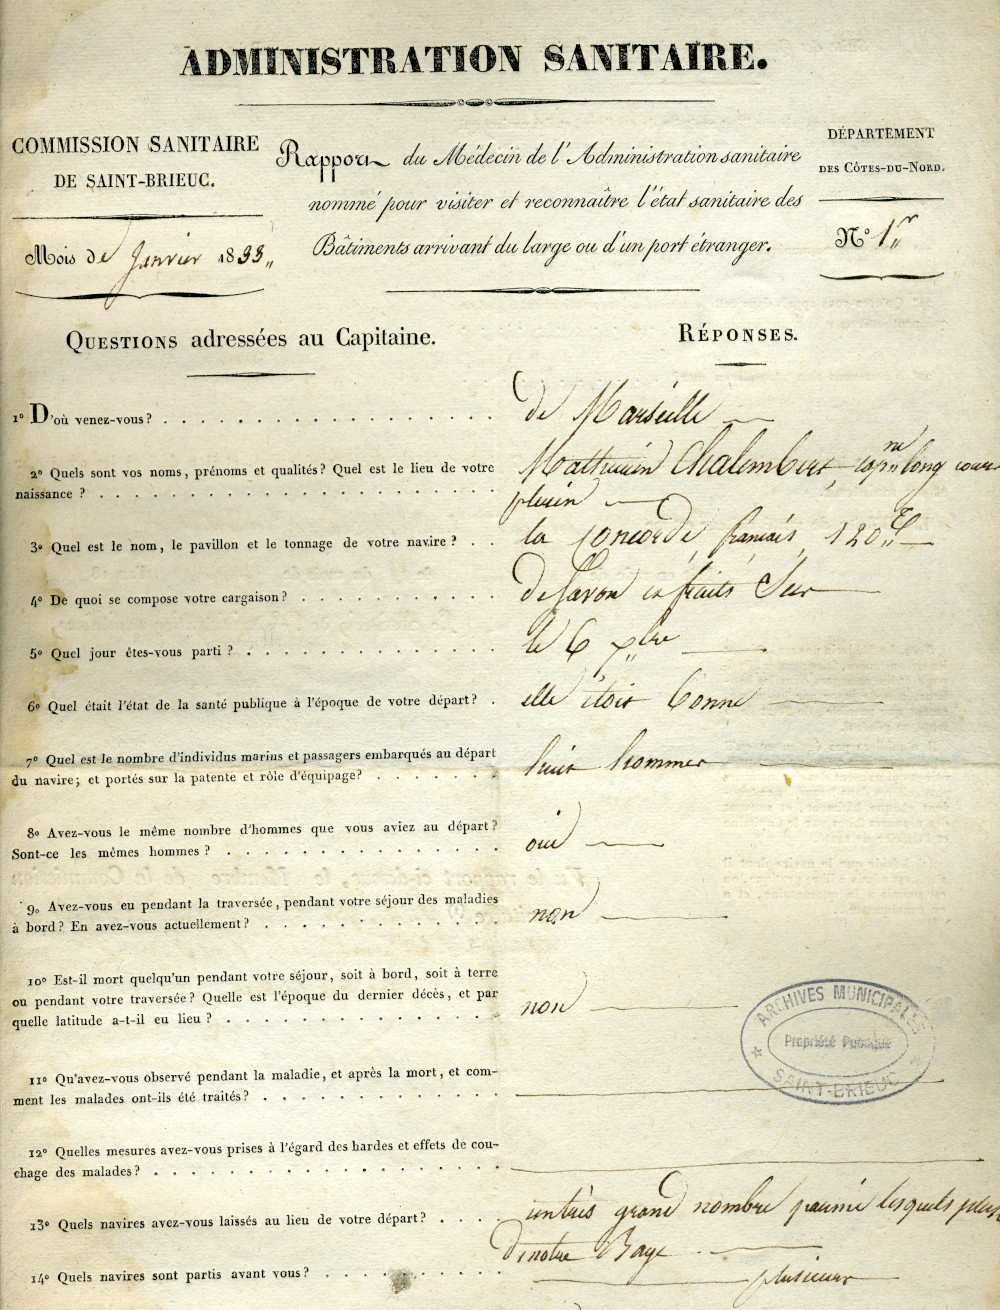 ADMINISTRATION SANITAIRE.
COMMISSION SANITAIRE
DE SAINT-BRIEUC.
Mois de Janvier 1833
Rapport du Médecin de l'Administration sanitaire
nommé pour visiter et reconnaître l'état sanitaire des
Bâtiments arrivant du large ou d'un port étranger.
DÉPARTEMENT
DES CÔTES-DU-NORD.
N° 1er
QUESTIONS adressées au Capitaine.
RÉPONSES.
1° D'où venez-vous?
de Marseille
2° Quels sont vos noms, prénoms et qualités? Quel est le lieu de votre
naissance?
Mathurin Chalembert capne long cours
3e Quel est le nom, le pavillon et le tonnage de votre navire?
la Concorde, français, 120
4° De quoi se compose votre cargaison?
De Savon et fruits Sec
5° Quel jour êtes-vous parti?
le 6 7bre
6° Quel était l'état de la santé publique à l'époque de votre départ?
elle étoit bonne
7° Quel est le nombre d'individus marins et passagers embarqués au départ
du navire; et portés sur la patente et rôle d'équipage?
huit hommes
8° Avez-vous le même nombre d'hommes que vous aviez au départ?
Sont-ce les mêmes hommes?
oui
9° Avez-vous eu pendant la traversée, pendant votre séjour des maladies
à bord? En avez-vous actuellement?
non
10° Est-il mort quelqu'un pendant votre séjour, soit à bord, soit à terre
ou pendant votre traversée? Quelle est l'époque du dernier décès, et par
quelle latitude a-t-il eu lieu?
non
ARCHIVES MUNICIPALES
Propriété Publique
SAINT-BRIEUC
11° Qu'avez-vous observé pendant la maladie, et après la mort, et com-
ment les malades ont-ils été traités?
12° Quelles mesures avez-vous prises à l'égard des hardes et effets de cou-
chage des malades?
13e Quels navires avez-vous laissés au lieu de votre départ?
un très grand nombre parmi lesquels plus
De notre Baye
14e Quels navires sont partis avant vous?
plusieurs